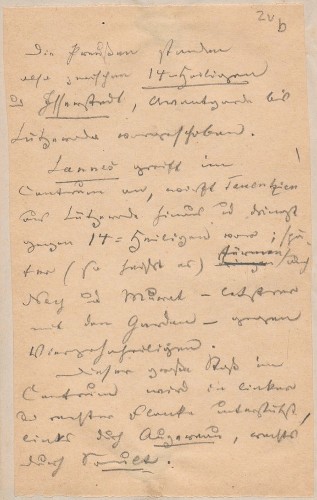 20
b
Die Preußen standen
also zwischen 14-Heiligen
u Isserstedt, Avantgarde bis
Lützeroda vorgeschoben.
Lannes greift im
Centrum an, wirft Tauentzien
aus Lützeroda hinaus u dringt
gegen 14=Heiligen vor; spä
ter (so heißt es) stürmen auch
Ney u Murat – letztrer
mit den Garden – gegen
Vierzehnheiligen.
Dieser große Stoß im
Centrum wird in linker
u rechter Flanke unterstützt,
links durch Augereau, rechts
durch Soult.